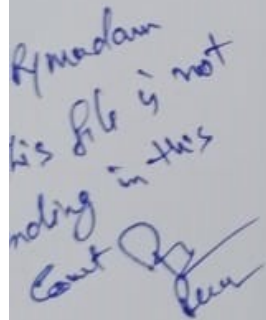 R/madam
his file is not
nding in this
Court